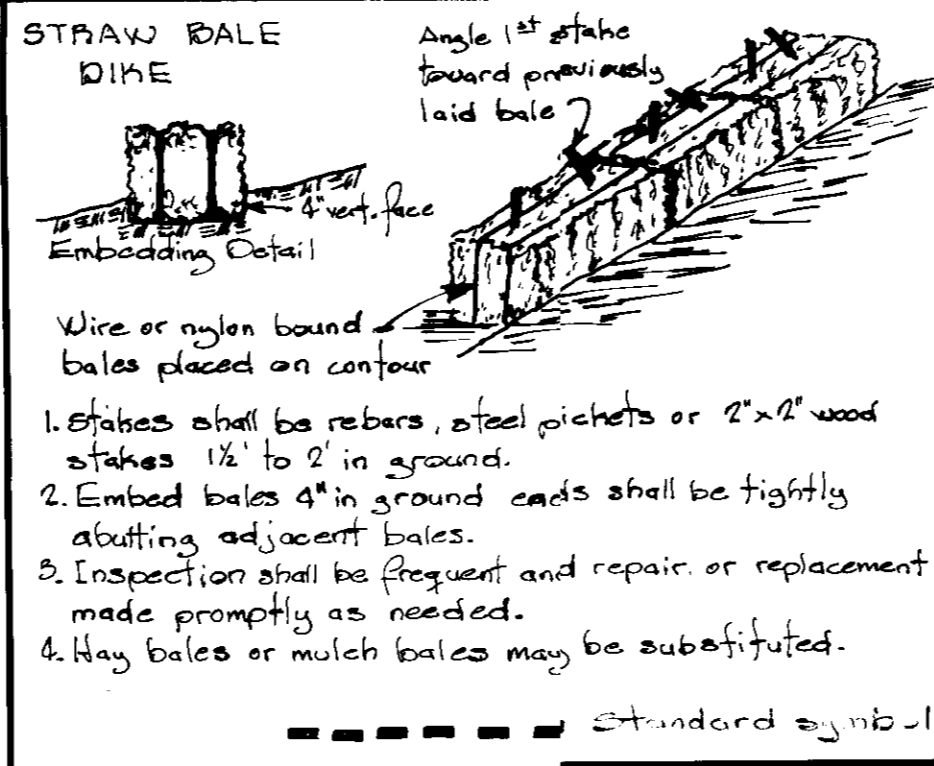 STRAW BALE
DIKE
Angle 1st stake
toward previously
laid bale
4" vert. face
Embedding Detail
Wire or nylon bound
bales placed on contour
1. Stakes shall be rebars, steel pickets or 2"x2" wood
stakes 1½' to 2' in ground.
2. Embed bales 4" in ground ends shall be tightly
abutting adjacent bales.
3. Inspection shall be frequent and repair. or replacement
made promptly as needed.
4. Hay bales or mulch bales may be substituted.
Standard symbol